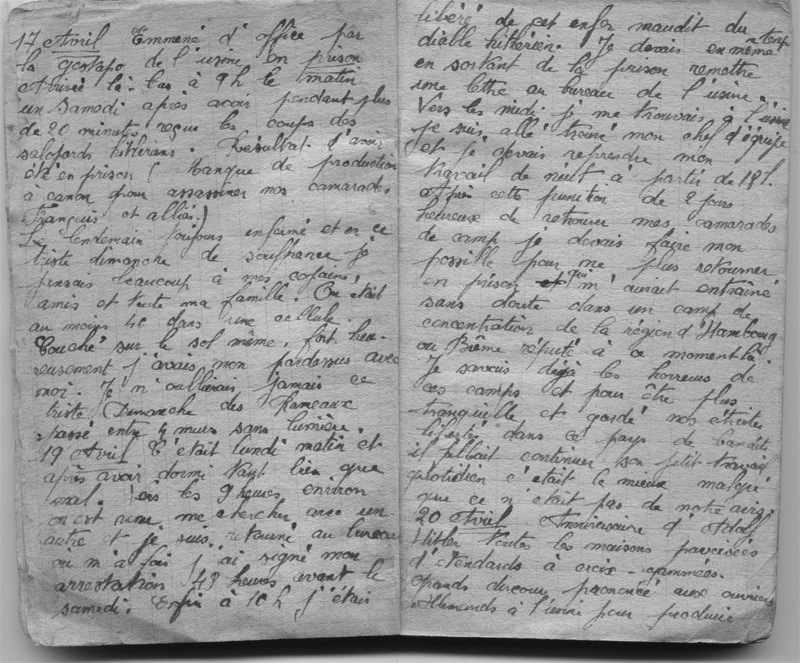 17 Avril Emmené d'office par
la gestapo de l'usine en prison
Arrivé là-bas à 9h le matin
un Samedi après avoir pendant plus
de 20 minutes reçus les coups des
salopards hitlériens. Résultat d'avoir
été en prison (Manque de production
à canon pour assassiner nos camarades
français et alliés.)
Le lendemain toujours enfermé et en ce
triste dimanche de souffrance je
pensais beaucoup à mes copains,
amis et toute ma famille. On était
au moins 40 dans une cellule.
Couché sur le sol même, fort heu-
reusement j'avais mon pardessus avec
moi. Je n'oublierais jamais ce
triste Dimanche des Rameaux
passé entre 4 murs sans lumière.
19 Avril C'était lundi matin et
après avoir dormi tant bien que
mal. Vers les 9 heures environ
on est venu me chercher avec un
autre et je suis retourné au bureau
ou m'a fois j'ai signé mon
arrestation 48 heures avant le
samedi. Enfin à 10 h j'étais
libéré de cet enfer maudit du
diable hitlérien. Je devais en même temps
en sortant de la prison remettre
une lettre au bureau de l'usine.
Vers les midi je me trouvais à l'usine
je suis allé trouvé mon chef d'équipe
et je devais reprendre mon
travail de nuit à partir de 18h.
Après cette punition de 2 jours
heureux de retrouver mes camarades
de camp je devais faire mon
possible pour ne plus retourner
en prison qui m'aurait entraîné
sans doute dans un camp de
concentration de la région d'Hambourg
ou Brême réputé à ce moment là.
Je savais déjà les horreurs de
ces camps et pour être plus
tranquille et gardé nos étroites
libertés dans ce pays de bandits
il fallait continuer son petit travail
quotidien c'était le mieux malgré
que ce n'était pas de notre avis.
20 Avril Anniversaire d'Adolf
Hitler toutes les maisons pavoisées
d'étendards à croix-gammées.
grands discours prononcé aux ouvriers
Allemands à l'usine pour produire